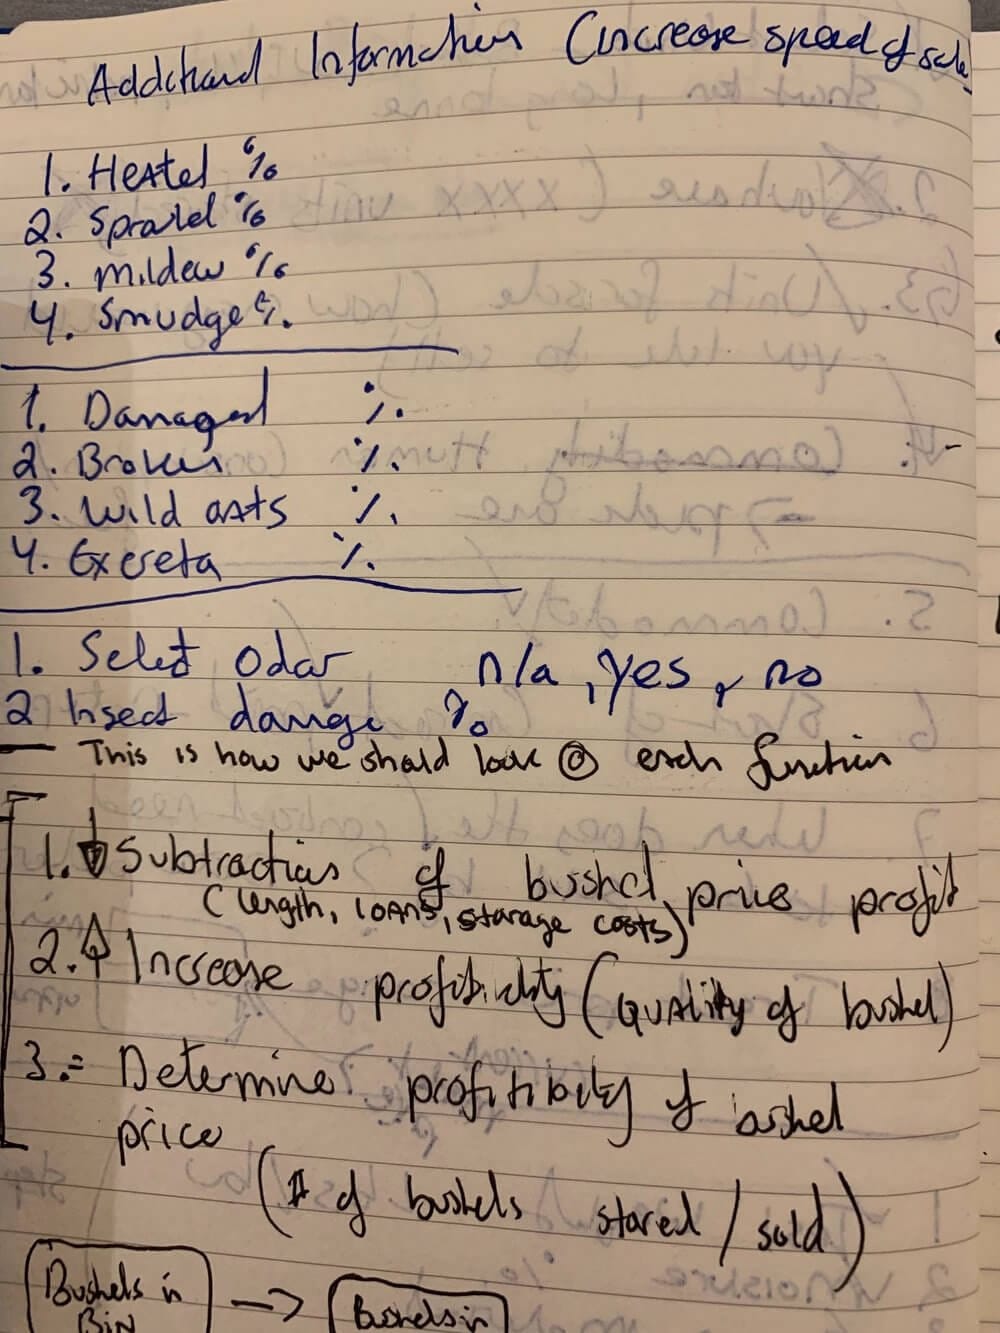 Additional Information (increase speed of sale)
1. Heated %
2. Sprouted %
3. Mildew %
4. Smudge %.
1. Damaged %.
2. Broken %.
3. Wild oats %.
4. Excreta %.
1. Select Odor n/a, yes, no
2 Insect damage %
— This is how we should look @ each function
1. ↓ Subtraction of bushel price profit
(length, loans, storage costs)
2. ↑ Increase profitibility (Quality of bushel)
3. = Determine profitibility of bushel
price
(# of bushels stored / sold)
Bushels in
Bin → Bushels in